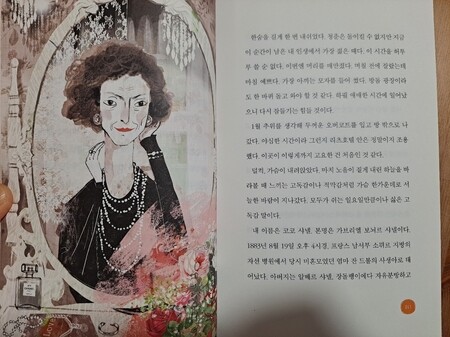 한숨을 길게 한 번 내쉬었다. 청춘은 돌이킬 수 없지만 지금
이 순간이 남은 내 인생에서 가장 젊은 때다. 이 시간을 허투
루 쓸 순 없다. 이번엔 머리를 매만졌다. 며칠 전에 잘랐는데
마침 예쁘다. 가장 아끼는 모자를 눌러 썼다. 방돔 광장이라
도 한 바퀴 돌고 와야 할 것 같다. 하필 애매한 시간에 일어났
으니 다시 잠들기는 힘들 것이다.
1월 추위를 생각해 두꺼운 오버코트를 입고 방 밖으로 나
갔다. 야심한 시간이라 그런지 리츠호텔 안은 정말이지 조용
했다. 이곳이 이렇게까지 고요한 건 처음인 것 같다.
덜컥, 가슴이 내려앉았다. 마치 노을이 짙게 내린 하늘을 바
라볼 때 느끼는 고독감이나 적막감처럼 가슴 한가운데로 서
늘한 바람이 지나갔다. 모두가 쉬는 일요일만큼이나 싫은 고
독감 말이다.
내 이름은 코코 샤넬, 본명은 가브리엘 보뇌르 샤넬이다.
1883년 8월 19일 오후 4시경, 프랑스 남서부 소뮈르 지방의
자선 병원에서 당시 미혼모였던 엄마 잔 드볼의 사생아로 태
어났다. 아버지는 알베르 샤넬, 장돌뱅이에다 자유분방하고